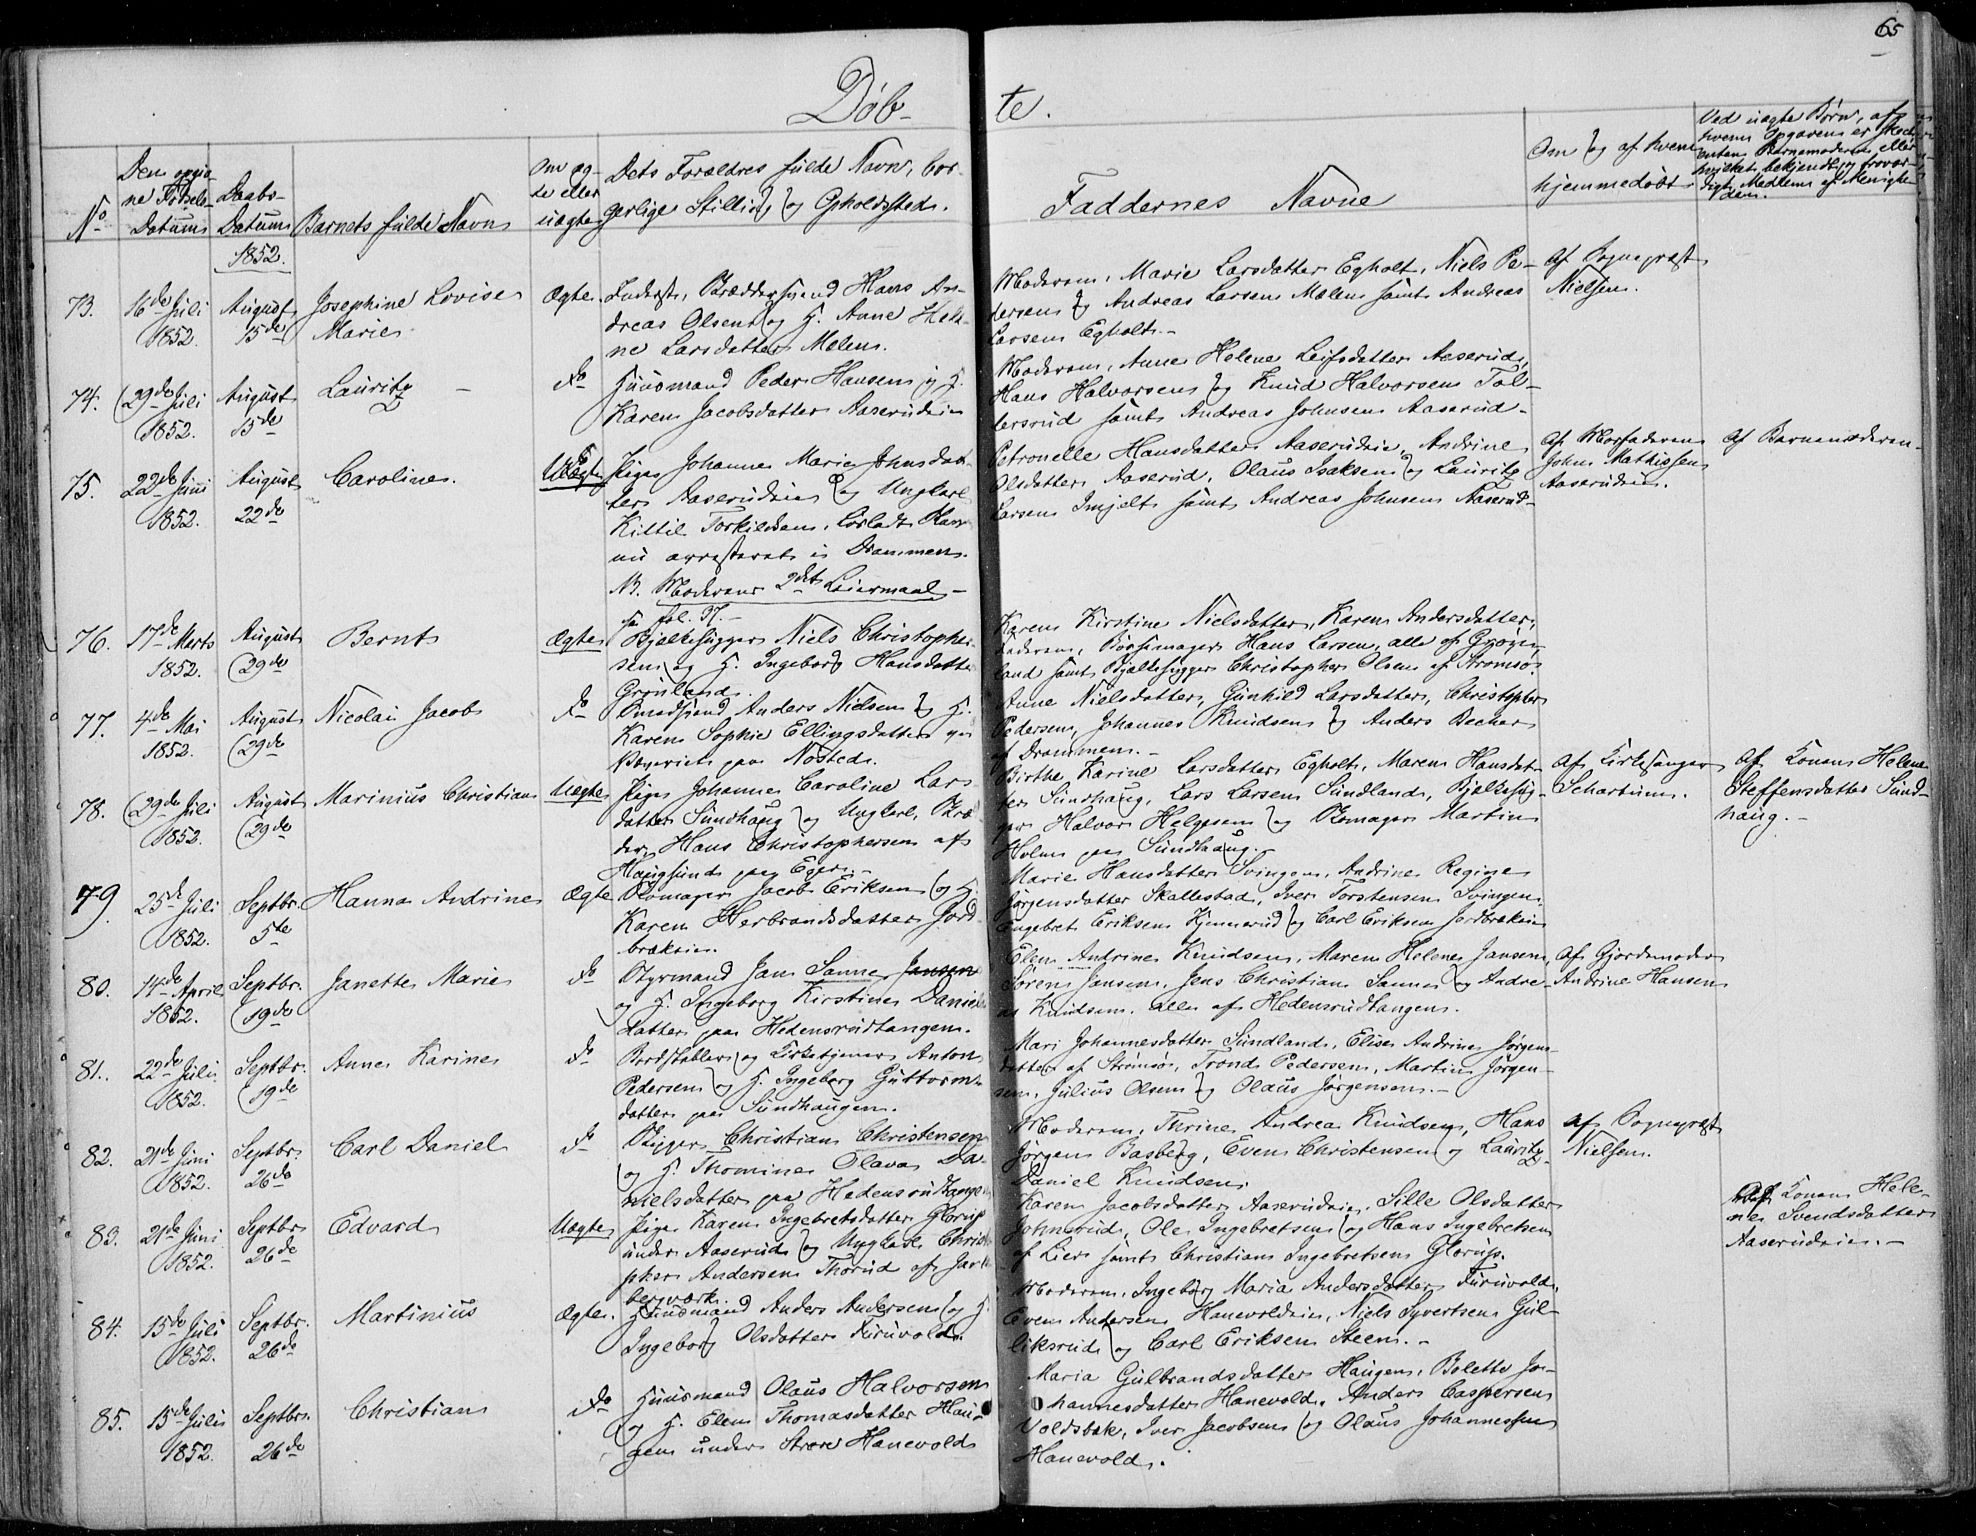 65
Døbte.
No
Dens opgivne Fødsels Datum
Daabs-Datum
1852.
Barnets fulde Navn
Om ægte eller uægte
Dets Forældres fulde Navn, borgerlige Stilling og Opholdssted.
Faddernes Navne
Om og af hvem hjemmedøbt
Ved uægte Børn, af hvem Opgaven er skeet
enten Barnemoderen eller
73.
16de Juli
1852.
August
15de
Josephine Lovise
Marie
Ægte
Hans An-
dreas Olsen og H. Anne Hele-
ne Larsdatter Melen.
Moderen, Marie Larsdatter Egholt, Niels Pe-
dersen og Andreas Larsen Mælen samt Andreas
Larsen Egholt.-
af Sognepræst
Nielsen.
74.
29de Juli
1852.
August
15de
Lauritz
do
Huusmand Peder Hansen og H.
Karen Jacobsdatter Aaserudeie
Moderen, Anne Helene Leifsdatter Aaserud,
Hans Halvorsen og Knud Halvorsen Tol-
lersrud samt Andreas Johnsen Aaserud-
75.
22de Juni
1852.
August
22de
Caroline.
Uægte
Pige Johanne Marie Johnsdat-
ter Aaserudeie og Ungkarl
Kittil Torkildsen,
nu arresteret i Drammen.
NB. Moderens 2det Leiermaal-
Petronelle Hansdatter Aaserudeie, Andrine
Olsdatter Aaserud, Olaus Isaksen og Lauritz
Larsen Smjelt samt Andreas Johnsen Aaserud-
af Morfaderen
John Mathissen
Aaserudeie.
Af Barnemoderen-
76.
17de Marts
1852.
August
29de
Bernt
Ægte
Bjælkehugger Niels Christopher-
sen og H. Ingeborg Hansdatter
Grønland.
Karen Kirstine Nielsdatter, Karen Andersdatter,
Faderen, Børsemager Hans Larsen, alle af Grøn-
land samt Bjælkehugger Christopher Olsen af Strømsø.
77.
4de Mai
1852.
August
29de
Nicolai Jacob
do
Anders Nielsen og H.
Karen Sophie Ellingsdatter
paa Nøsted.
Anne Nielsdatter, Gunhild Larsdatter, Christopher
Pedersen, Johannes Knudsen og Anders Becker
af Drammen.-
78.
29de Juli
1852.
August
29de
Marinius Christian
Uægte
Pige Johanne Caroline Lars-
datter Sundhaug og Ungkarl,
Hans Christophersen af
Haugsund paa Eger.-
Birthe Karine Larsdatter Egholt, Maren Hansdat-
ter Sundhaug, Lars Larsen Sundland, Bjælkehug-
ger Halvor Helgesen og Skomager Martin
Holm paa Sundhaug.-
af Kirkesanger
Schartum.
Af Konen Helene
Steffensdatter Sund-
haug.-
79.
25de Juli
1852.
Septbr.
5te
Hanna Andrine
Ægte
Skomager Jacob Eriksen og H.
Karen Herbrandsdatter Jord-
brækeie.
Marie Hansdatter Svingen, Andrine Regine
Jørgensdatter Skallestad, Iver Torstensen Svingen,
Engebret Eriksen Kjennerud og Carl Eriksen Jordbrækeie
80.
14de April
1852.
Septbr.
19de
Janette Marie
do
Styrmand Jans Sanne Jansen
og H. Ingeborg Kirstine Daniels-
datter paa Hedensrudtangen.
Elen Andrine Knudsen, Maren Helene Jansen,
Søren Jansen, Jens Christian Sanne og Andre-
as Knudsen, alle af Hedensrudtangen.
af Gjordemoder
Andrine Hansen
81.
22de Juli
1852.
Septbr.
19de
Anne Karine
do
Bordstabler og Kirketjener Anton
Pedersen og H. Ingeborg Guttorms-
datter paa Sundhaugen.
Mari Johannesdatter Sundland, Elise Andrine Jørgens-
datter af Strømsø, Trond Pedersen, Martin Jørgen-
sen, Julius Olsen og Olaus Jørgensen.-
82.
21de Juni
1852.
Septbr.
26de
Carl Daniel
do
Christian Christensen
og H. Thomine Olava Da-
nielsdatter paa Hedensrudtangen
Moderen, Thrine Andrea Knudsen, Hans
Jørgen Basberg, Even Christensen og Lauritz
Daniel Knudsen.
af Sognepræst
Nielsen.
83.
21de Juni
1852.
Septbr.
26de
Edvard
Uægte
Pige Karen Ingebretsdatter Glorup
under Aaserud og Ungkarl Christo-
pher Andersen Thorud af Jarls-
bergværk.
Karen Jacobsdatter Aaserudeie, Sille Olsdatter
Johnsrud, Ole Ingebretsen og Hans Ingebretsen
af Lier samt Christian Ingebretsen Glorup.
Af Konen Hele-
ne Svendsdatter
Aaserudeie.-
84.
15de Juli
1852.
Septbr.
26de
Martinius
Ægte.
Huusmand Anders Andersen og H.
Ingeborg Olsdatter Furuvold.
Moderen, Ingeborg Maria Andersdatter Furuvold,
Even Andersen Hanevoldeie, Niels Syvertsen Gul-
liksrud og Carl Eriksen Steen.-
85.
15de Juli
1852.
Septbr.
26de
Christian
do
Huusmand Olaus Halvorsen
og H. Elen Thomasdatter Hau-
gen under Store Hanevold
Maria Gulbrandsdatter Haugen, Bolette Jo-
hannesdatter Hanevold, Anders Caspersen
Voldsbæk, Iver Jacobsen og Olaus Johannessen
Hanevold.